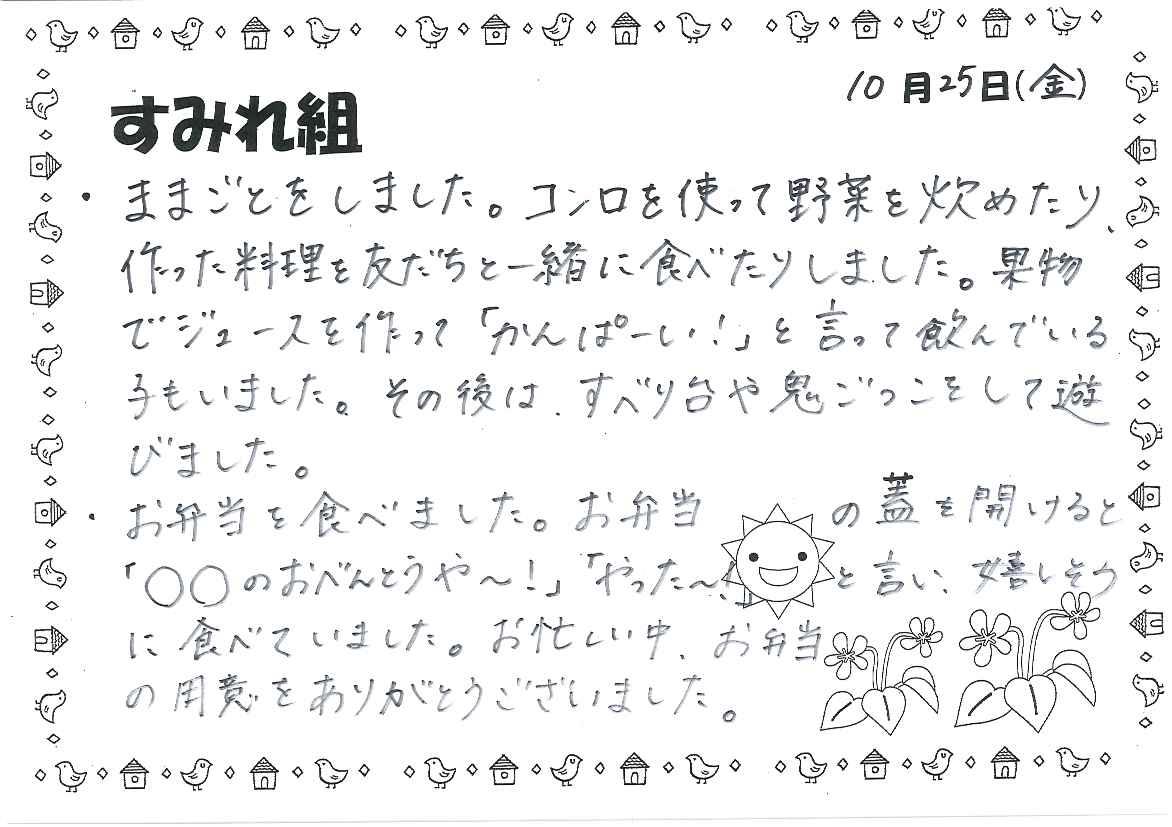 10月25日(金)
すみれ組
・ままごとをしました。コンロを使って野菜を炊めたり、
作った料理を友だちと一緒に食べたりしました。果物
でジュースを作って「かんぱーい!」と言って飲んでいる
子もいました。その後は、すべり台や鬼ごっこをして遊
びました。
・お弁当を食べました。お弁当の蓋を開けると
「○○のおべんとうや〜!」「やった〜!」と言い、嬉しそう
に食べていました。お忙しい中、お弁当
の用意をありがとうございました。